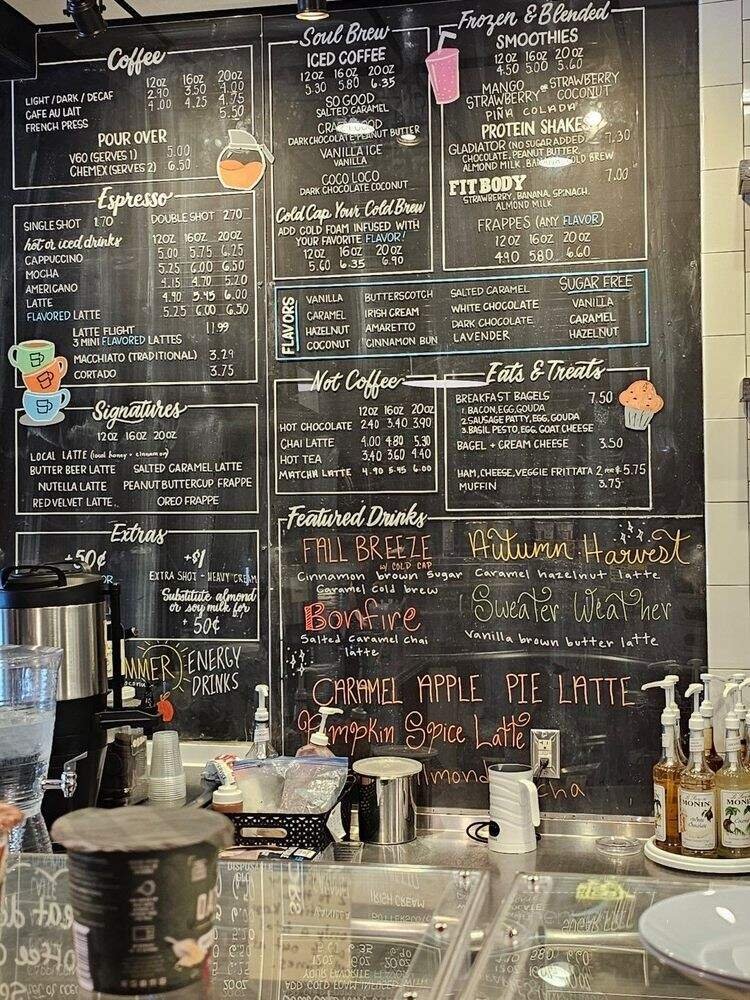 Coffee
12oz 16oz 20oz
LIGHT / DARK / DECAF 2.90 3.50 4.00
CAFE AU LAIT 4.00 4.25 4.75
FRENCH PRESS 5.50
POUR OVER
V60 (SERVES 1) 5.00
CHEMEX (SERVES 2) 6.50
Espresso
SINGLE SHOT 1.70 DOUBLE SHOT 2.70
hot or iced drinks 12oz 16oz 20oz
CAPPUCCINO 5.00 5.75 6.25
MOCHA 5.25 6.00 6.50
AMERICANO 4.15 4.70 5.20
LATTE 4.90 5.45 6.00
FLAVORED LATTE 5.25 6.00 6.50
LATTE FLIGHT 11.99
3 MINI FLAVORED LATTES
MACCHIATO (TRADITIONAL) 3.29
CORTADO 3.75
Signatures
12oz 16oz 20oz
LOCAL LATTE (local honey + cinnamon)
BUTTER BEER LATTE SALTED CARAMEL LATTE
NUTELLA LATTE PEANUT BUTTERCUP FRAPPE
RED VELVET LATTE OREO FRAPPE
Extras
+50¢ +$1
EXTRA SHOT - HEAVY CREAM
Substitute almond
or soy milk for
+ 50¢
ENERGY
DRINKS
Soul Brew
ICED COFFEE
12oz 16oz 20oz
5.30 5.80 6.35
SO GOOD
SALTED CARAMEL
DARK CHOCOLATE PEANUT BUTTER
VANILLA ICE
VANILLA
COCO LOCO
DARK CHOCOLATE COCONUT
Cold Cap Your Cold Brew
ADD COLD FOAM INFUSED WITH
YOUR FAVORITE FLAVOR!
12oz 16oz 20oz
5.60 6.35 6.90
Frozen & Blended
SMOOTHIES
12oz 16oz 20oz
4.50 5.00 5.60
MANGO or STRAWBERRY
STRAWBERRY COCONUT
PIÑA COLADA
PROTEIN SHAKES 7.30
GLADIATOR (NO SUGAR ADDED)
CHOCOLATE, PEANUT BUTTER,
ALMOND MILK, BANANA, COLD BREW
FIT BODY 7.00
STRAWBERRY, BANANA, SPINACH,
ALMOND MILK
FRAPPES (ANY FLAVOR)
12oz 16oz 20oz
4.90 5.80 6.60
FLAVORS
VANILLA BUTTERSCOTCH SALTED CARAMEL SUGAR FREE
CARAMEL IRISH CREAM WHITE CHOCOLATE VANILLA
HAZELNUT AMARETTO DARK CHOCOLATE CARAMEL
COCONUT CINNAMON BUN LAVENDER HAZELNUT
Not Coffee
12oz 16oz 20oz
HOT CHOCOLATE 2.40 3.40 3.90
CHAI LATTE 4.00 4.80 5.30
HOT TEA 3.40 3.60 4.40
MATCHA LATTE 4.90 5.45 6.00
Eats & Treats
BREAKFAST BAGELS 7.50
1. BACON, EGG, GOUDA
2. SAUSAGE PATTY, EGG, GOUDA
3. BASIL PESTO, EGG, GOAT CHEESE
BAGEL + CREAM CHEESE 3.50
HAM, CHEESE, VEGGIE FRITTATA 5.75
MUFFIN 3.75
Featured Drinks
FALL BREEZE
w/ COLD CAP
Cinnamon brown sugar
Caramel cold brew
Autumn Harvest
Caramel hazelnut latte
Bonfire
Salted caramel chai
latte
Sweater Weather
Vanilla brown butter latte
CARAMEL APPLE PIE LATTE
Pumpkin Spice Latte
MONIN